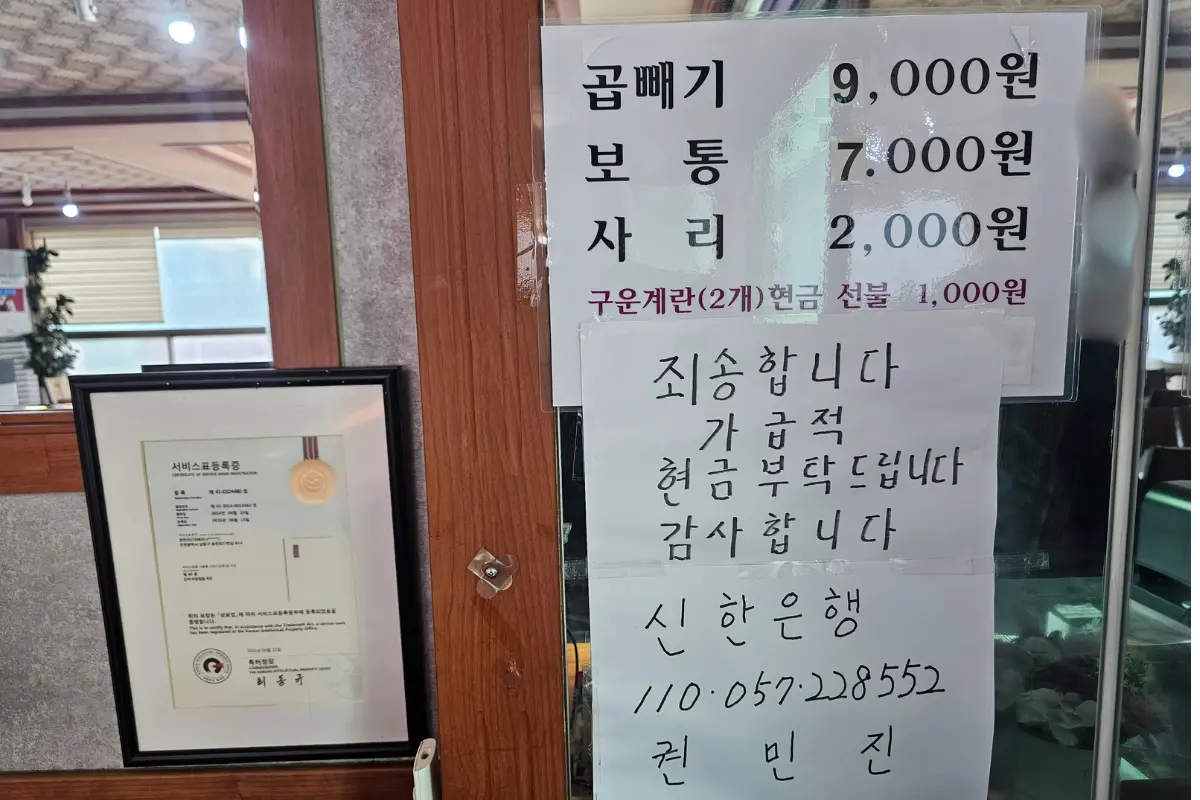 곱빼기 9,000원
보통 7.000원
사리 2,000원
구운계란(2개)현금 선불 1,000원
죄송합니다
가급적
현금부탁드립니다
감사합니다
신한은행
110·057·228552
권민진
서비스표등록증
CERTIFICATE OF SERVICE MARK REGISTRATION
등록
특허청장
COMMISSIONER,
THE KOREAN INTELLECTUAL PROPERTY OFFICE